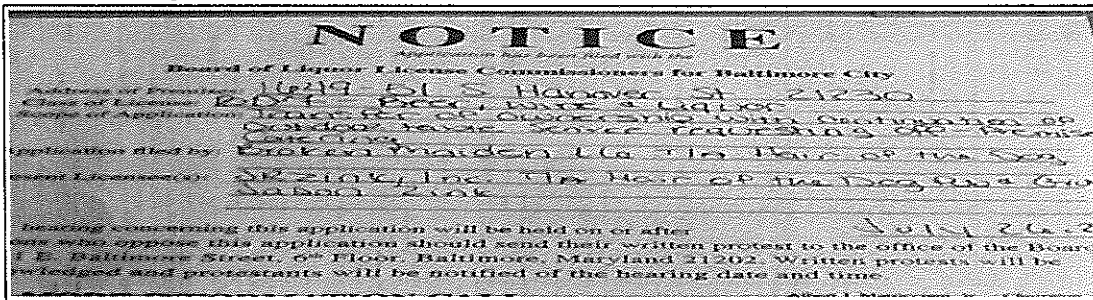 NOTICE
Application has been filed with the
Board of Liquor License Commissioners for Baltimore City
Address of Premises: 1649-51 S Hanover St 21230
Class of License: Beer, Wine & Liquor
Scope of Application: Transfer of ownership with continuation of
requesting off Premise
Catering
pplication filed by: Broken Maiden LLC T/a Hair of the Dog
sent Licensee(s): JRZink, Inc T/a Hair of the Dog,
Susan Zink
hearing concerning this application will be held on or after July 26,
ons who oppose this application should send their written protest to the office of the Board
1 E. Baltimore Street, 6th Floor, Baltimore, Maryland 21202. Written protests will be
wledged and protestants will be notified of the hearing date and time